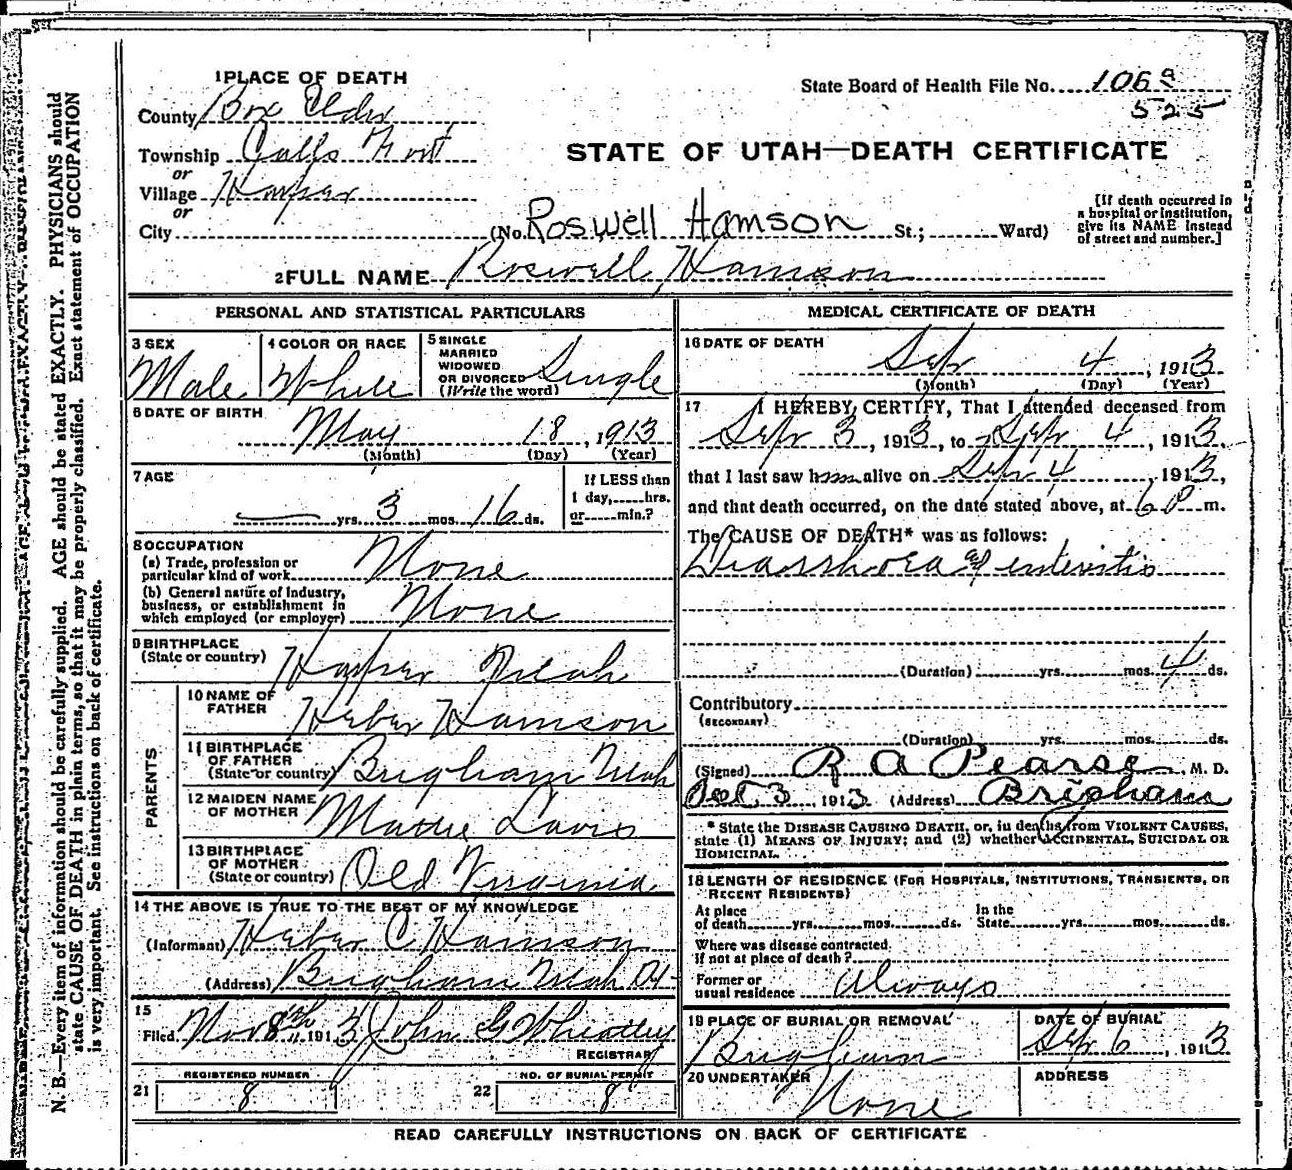 1 PLACE OF DEATH
County Box Elder
Township Calls Fort
or
Village Harper
or
City
State Board of Health File No. 106a
525
STATE OF UTAH—DEATH CERTIFICATE
(No. Roswell Hamson St.; Ward)
[If death occurred in
a hospital or institution,
give its NAME instead
of street and number.]
2 FULL NAME Roswell Hamson
PERSONAL AND STATISTICAL PARTICULARS
3 SEX
Male
4 COLOR OR RACE
White
5 SINGLE
MARRIED
WIDOWED
OR DIVORCED
(Write the word)
Single
6 DATE OF BIRTH
May 18, 1913
(Month) (Day) (Year)
7 AGE
— yrs. 3 mos. 16 ds.
If LESS than
1 day, hrs.
or min.?
8 OCCUPATION
(a) Trade, profession or
particular kind of work None
(b) General nature of industry,
business, or establishment in
which employed (or employer) None
9 BIRTHPLACE
(State or country) Harper Utah
PARENTS
10 NAME OF
FATHER Heber Hamson
11 BIRTHPLACE
OF FATHER
(State or country) Brigham Utah
12 MAIDEN NAME
OF MOTHER Mattie Davis
13 BIRTHPLACE
OF MOTHER
(State or country) Old Virginia
14 THE ABOVE IS TRUE TO THE BEST OF MY KNOWLEDGE
(Informant) Heber C Hamson
(Address) Brigham Utah
15
Filed Nov 8th 1913 John G Wheatley
REGISTRAR
REGISTERED NUMBER
21 8
NO. OF BURIAL PERMIT
22 8
MEDICAL CERTIFICATE OF DEATH
16 DATE OF DEATH
Sep 4, 1913
(Month) (Day) (Year)
17 I HEREBY CERTIFY, That I attended deceased from
Sep 3, 1913, to Sep 4, 1913,
that I last saw him alive on Sep 4, 1913,
and that death occurred, on the date stated above, at 6 P m.
The CAUSE OF DEATH* was as follows:
Diarrhoea and enteritis
(Duration) yrs. mos. 4 ds.
Contributory
(SECONDARY)
(Duration) yrs. mos. ds.
(Signed) R A Pearse, M. D.
Oct 3 1913 (Address) Brigham
* State the DISEASE CAUSING DEATH, or, in deaths from VIOLENT CAUSES,
state (1) MEANS OF INJURY; and (2) whether ACCIDENTAL, SUICIDAL OR
HOMICIDAL.
18 LENGTH OF RESIDENCE (FOR HOSPITALS, INSTITUTIONS, TRANSIENTS, OR
RECENT RESIDENTS)
At place
of death yrs. mos. ds.
In the
State yrs. mos. ds.
Where was disease contracted
if not at place of death?
Former or
usual residence Always
19 PLACE OF BURIAL OR REMOVAL
Brigham
DATE OF BURIAL
Sep 6, 1913
20 UNDERTAKER
None
ADDRESS
READ CAREFULLY INSTRUCTIONS ON BACK OF CERTIFICATE
N. B.—Every item of information should be carefully supplied. AGE should be stated EXACTLY. PHYSICIANS should
state CAUSE OF DEATH in plain terms, so that it may be properly classified. Exact statement of OCCUPATION
is very important. See instructions on back of certificate.